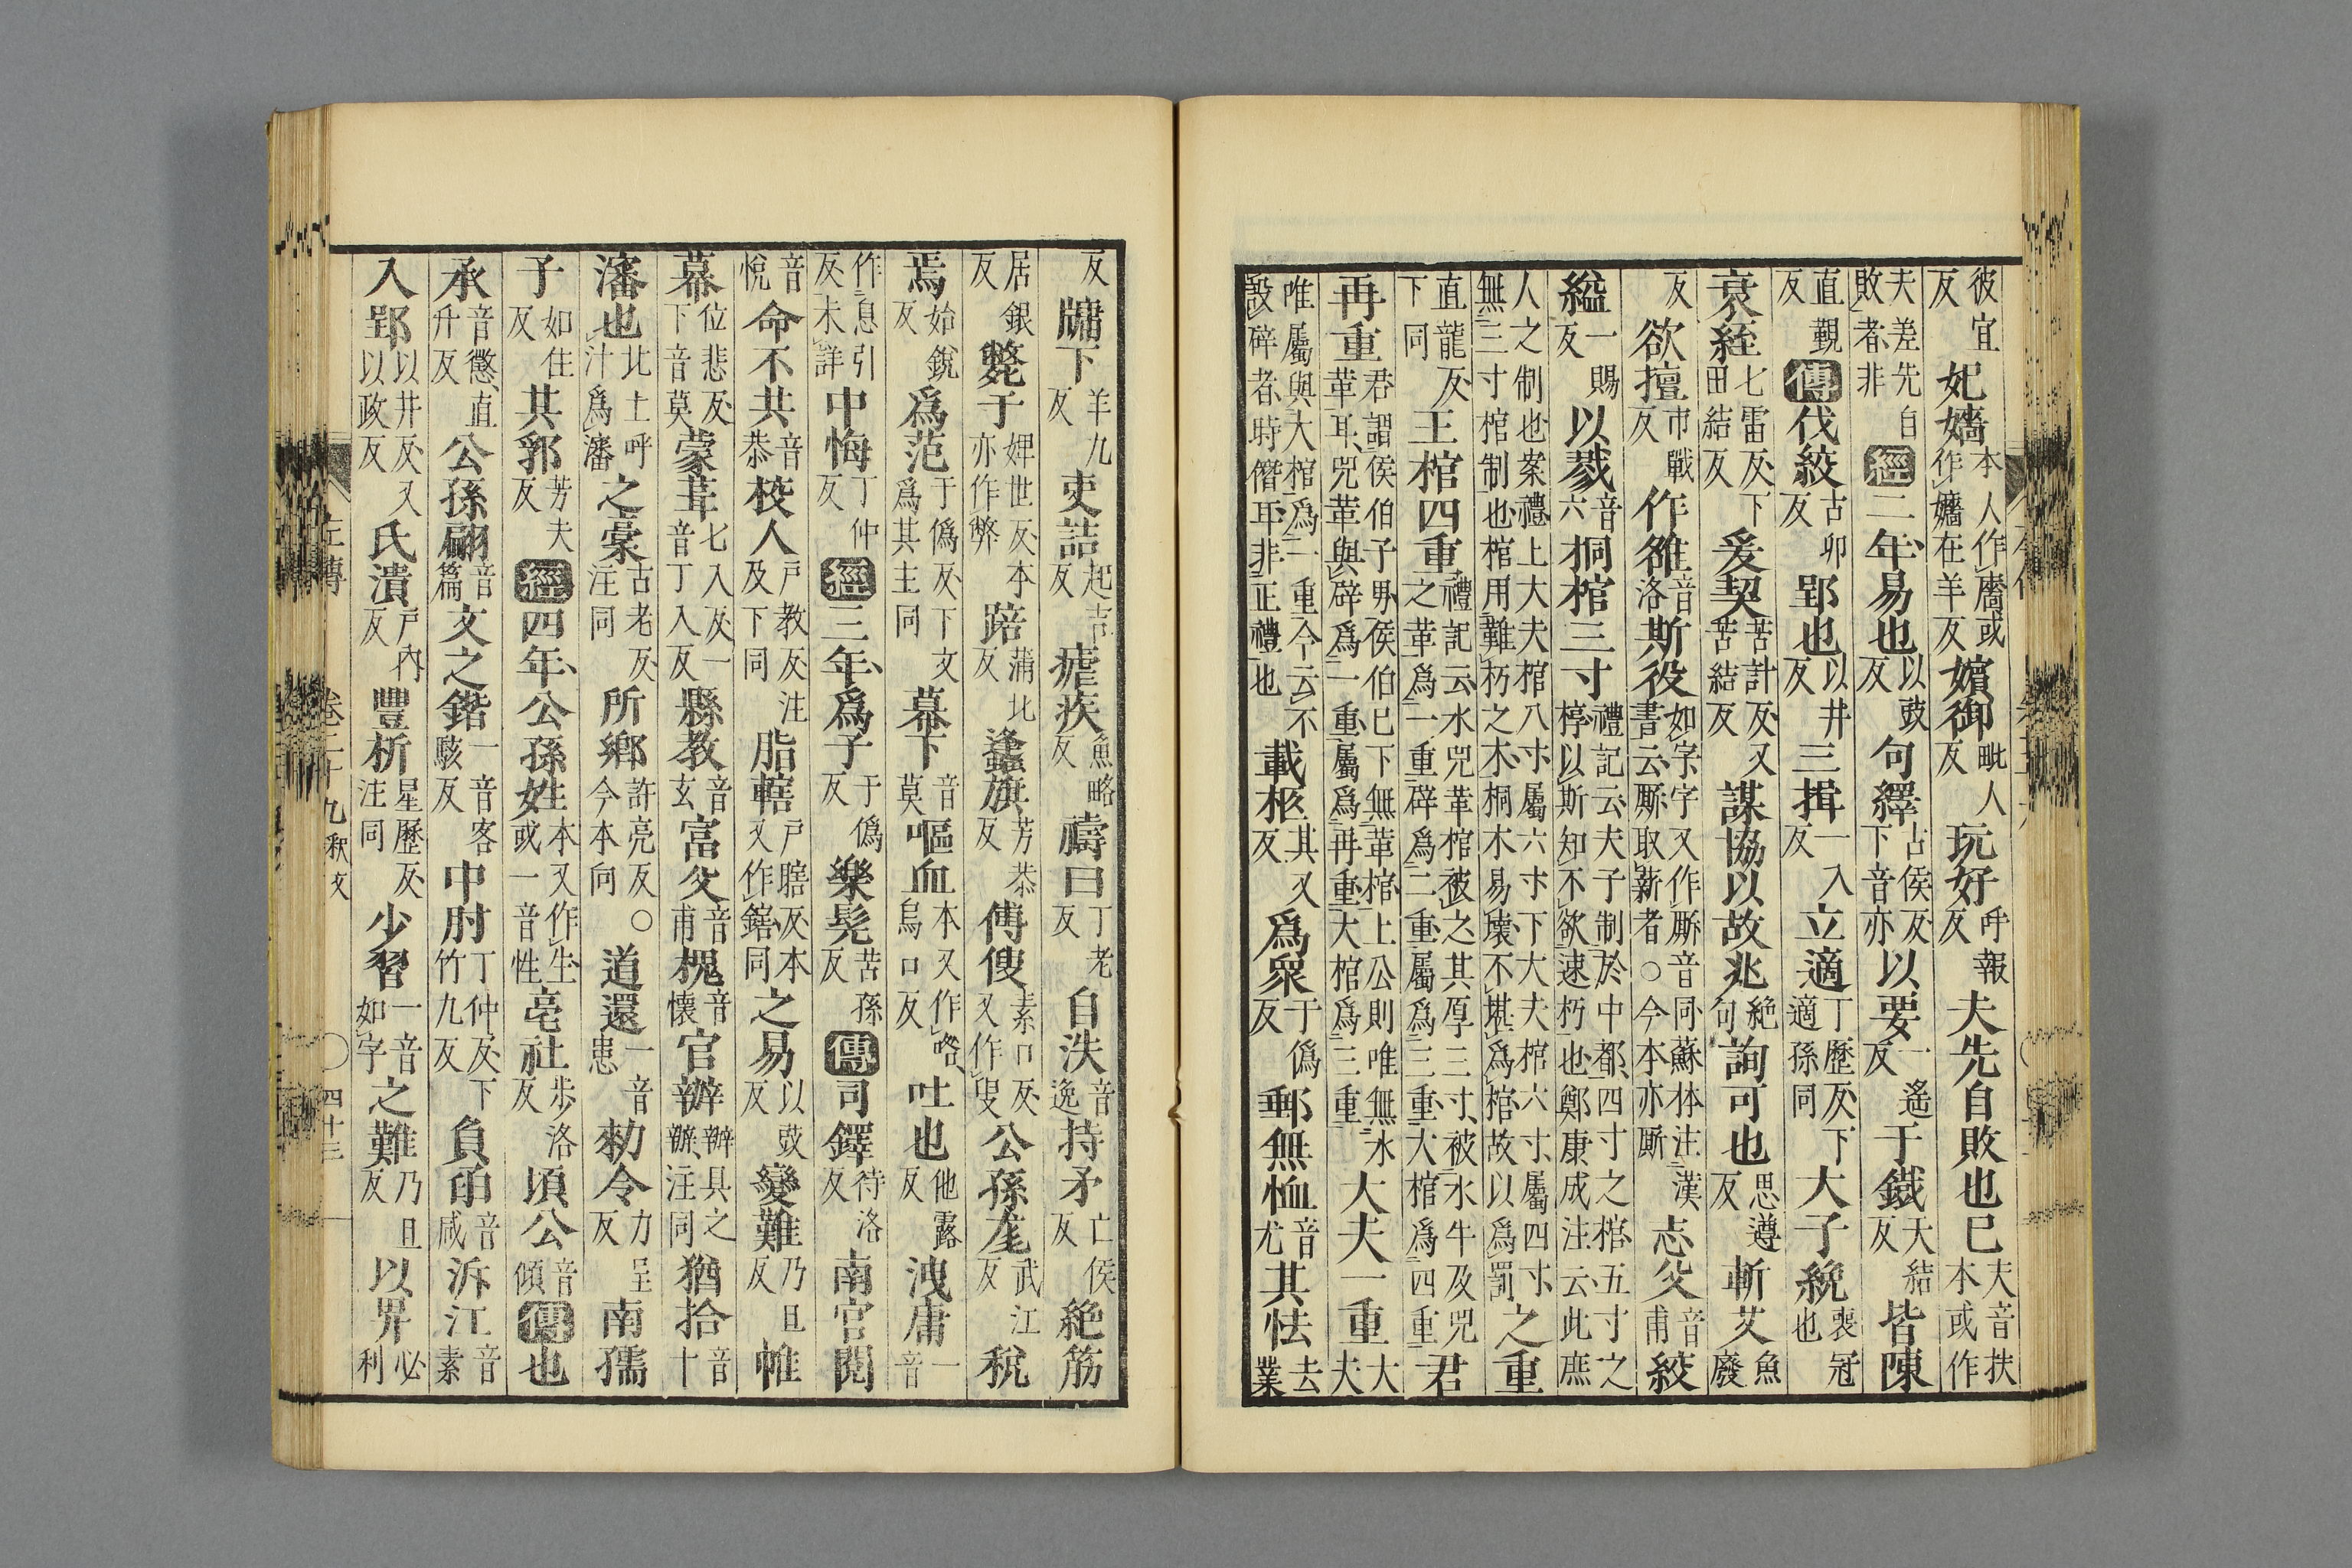 彼宜反妃嬙本人作廧或作嬙在羊反嬪御毗人反玩好呼報反夫先自敗也巳夫音扶本或作
夫差先自敗者非經二年易也以豉反句繹古侯反下音亦以要一遙反于鐵天結反皆陳
直覲反傳伐絞古卯反郢也以井反三揖一入反立適丁歷反下適孫同大子絻喪冠也
衰絰七雷反下田結反爰契苦計反又苦結反謀協以故兆絶句詢可也思遵反斬艾魚廢
反欲擅市戰反作雒音洛斯役如字字又作廝音同蘇林注漢書云廝取薪者○今本亦廝志父音甫絞
縊一賜反以戮音六桐棺三寸禮記云夫子制於中都四寸之棺五寸之椁以斯知不欲速朽也鄭康成注云此庶
人之制也案禮上大夫棺八寸屬六寸下大夫棺六寸屬四寸無三寸棺制也棺用難朽之木桐木易壞不堪爲棺故以爲罰之重
直龍反下同王棺四重禮記云水兕革棺被之其厚三寸被水牛及兕之革爲一重辟爲二重屬爲三重大棺爲四重君
再重君謂侯伯子男侯伯巳下無革棺上公則唯無水革耳兕革與辟爲一重屬爲再重大棺爲三重大夫一重大夫
唯屬與大棺爲一重今云不設辟者時僭耳非正禮也載柩其又反爲衆于僞反郵無恤音尤其怯去業
反牖下羊九反吏詰起吉反瘧疾魚略反禱曰丁老反自泆音逸持矛亡侯反絶筋
居銀反斃于婢世反本亦作弊踣蒲北反蠭旗芳恭反傅傁素口反又作叟公孫尨武江反稅
焉始銳反爲范于僞反下文爲其主同幕下音莫嘔血本又作㖃烏口反吐也他露反洩庸一音
作息引反未詳中悔丁仲反經三年爲子于僞反樂髡苦孫反傳司鐸待洛反南宮閱
音悅命不共音恭校人戶教反注及下同脂轄戶瞎反本又作鎋同之易以豉反變難乃旦反帷
幕位悲反下音莫蒙葺七入反一音丁入反縣教音玄富父音甫槐音懷官辦辦具之辦注同猶拾音十
瀋也北土呼汁爲瀋之槀古老反注同所鄉許亮反今本向○道還一音患勑令力呈反南孺
子如住反其郛芳夫反經四年公孫姓本又作生或一音性亳社步洛反頃公音傾傳也
承音懲直升反公孫翩音篇文之鍇一音客駭反中肘丁仲反下竹九反負函音咸泝江音素
入郢以井反又以政反氏潰戶內反豐析星歷反注同少習一音如字之難乃旦反以畀必利
左傳 卷二十九 釈文 ○ 四十三